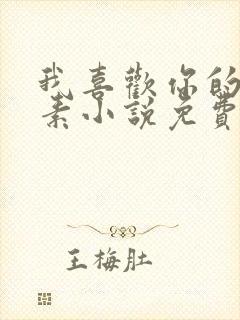 我喜歡你的
素小說免費
王梅肚